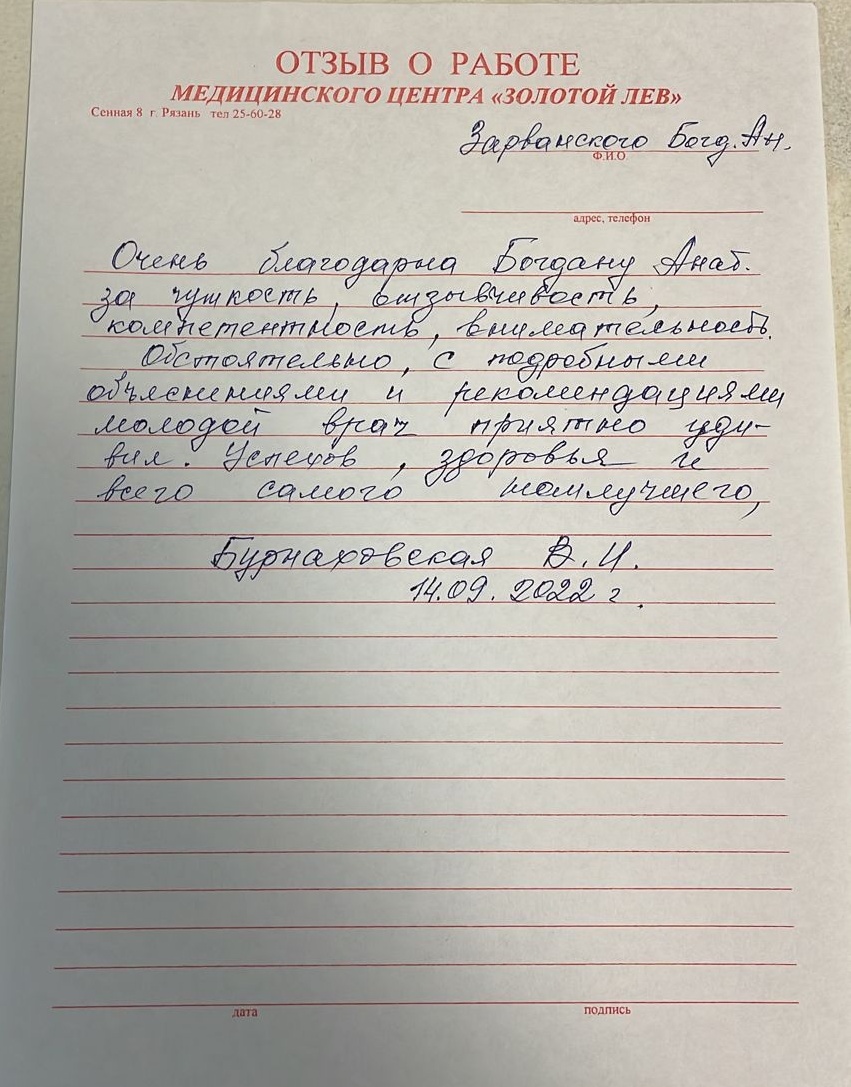 ОТЗЫВ О РАБОТЕ
МЕДИЦИНСКОГО ЦЕНТРА «ЗОЛОТОЙ ЛЕВ»
Сенная 8 г. Рязань тел 25-60-28
Зарванского Богд. Ан.
Ф.И.О.
адрес, телефон
Очень благодарна Богдану Анат.
за чуткость, отзывчивость,
компетентность, внимательность.
Обстоятельно, с подробными
объяснениями и рекомендациями
молодой врач приятно уди-
вил. Успехов, здоровья и
всего самого наилучшего,
Бурнаховская В. И.
14.09.2022 г.
дата подпись